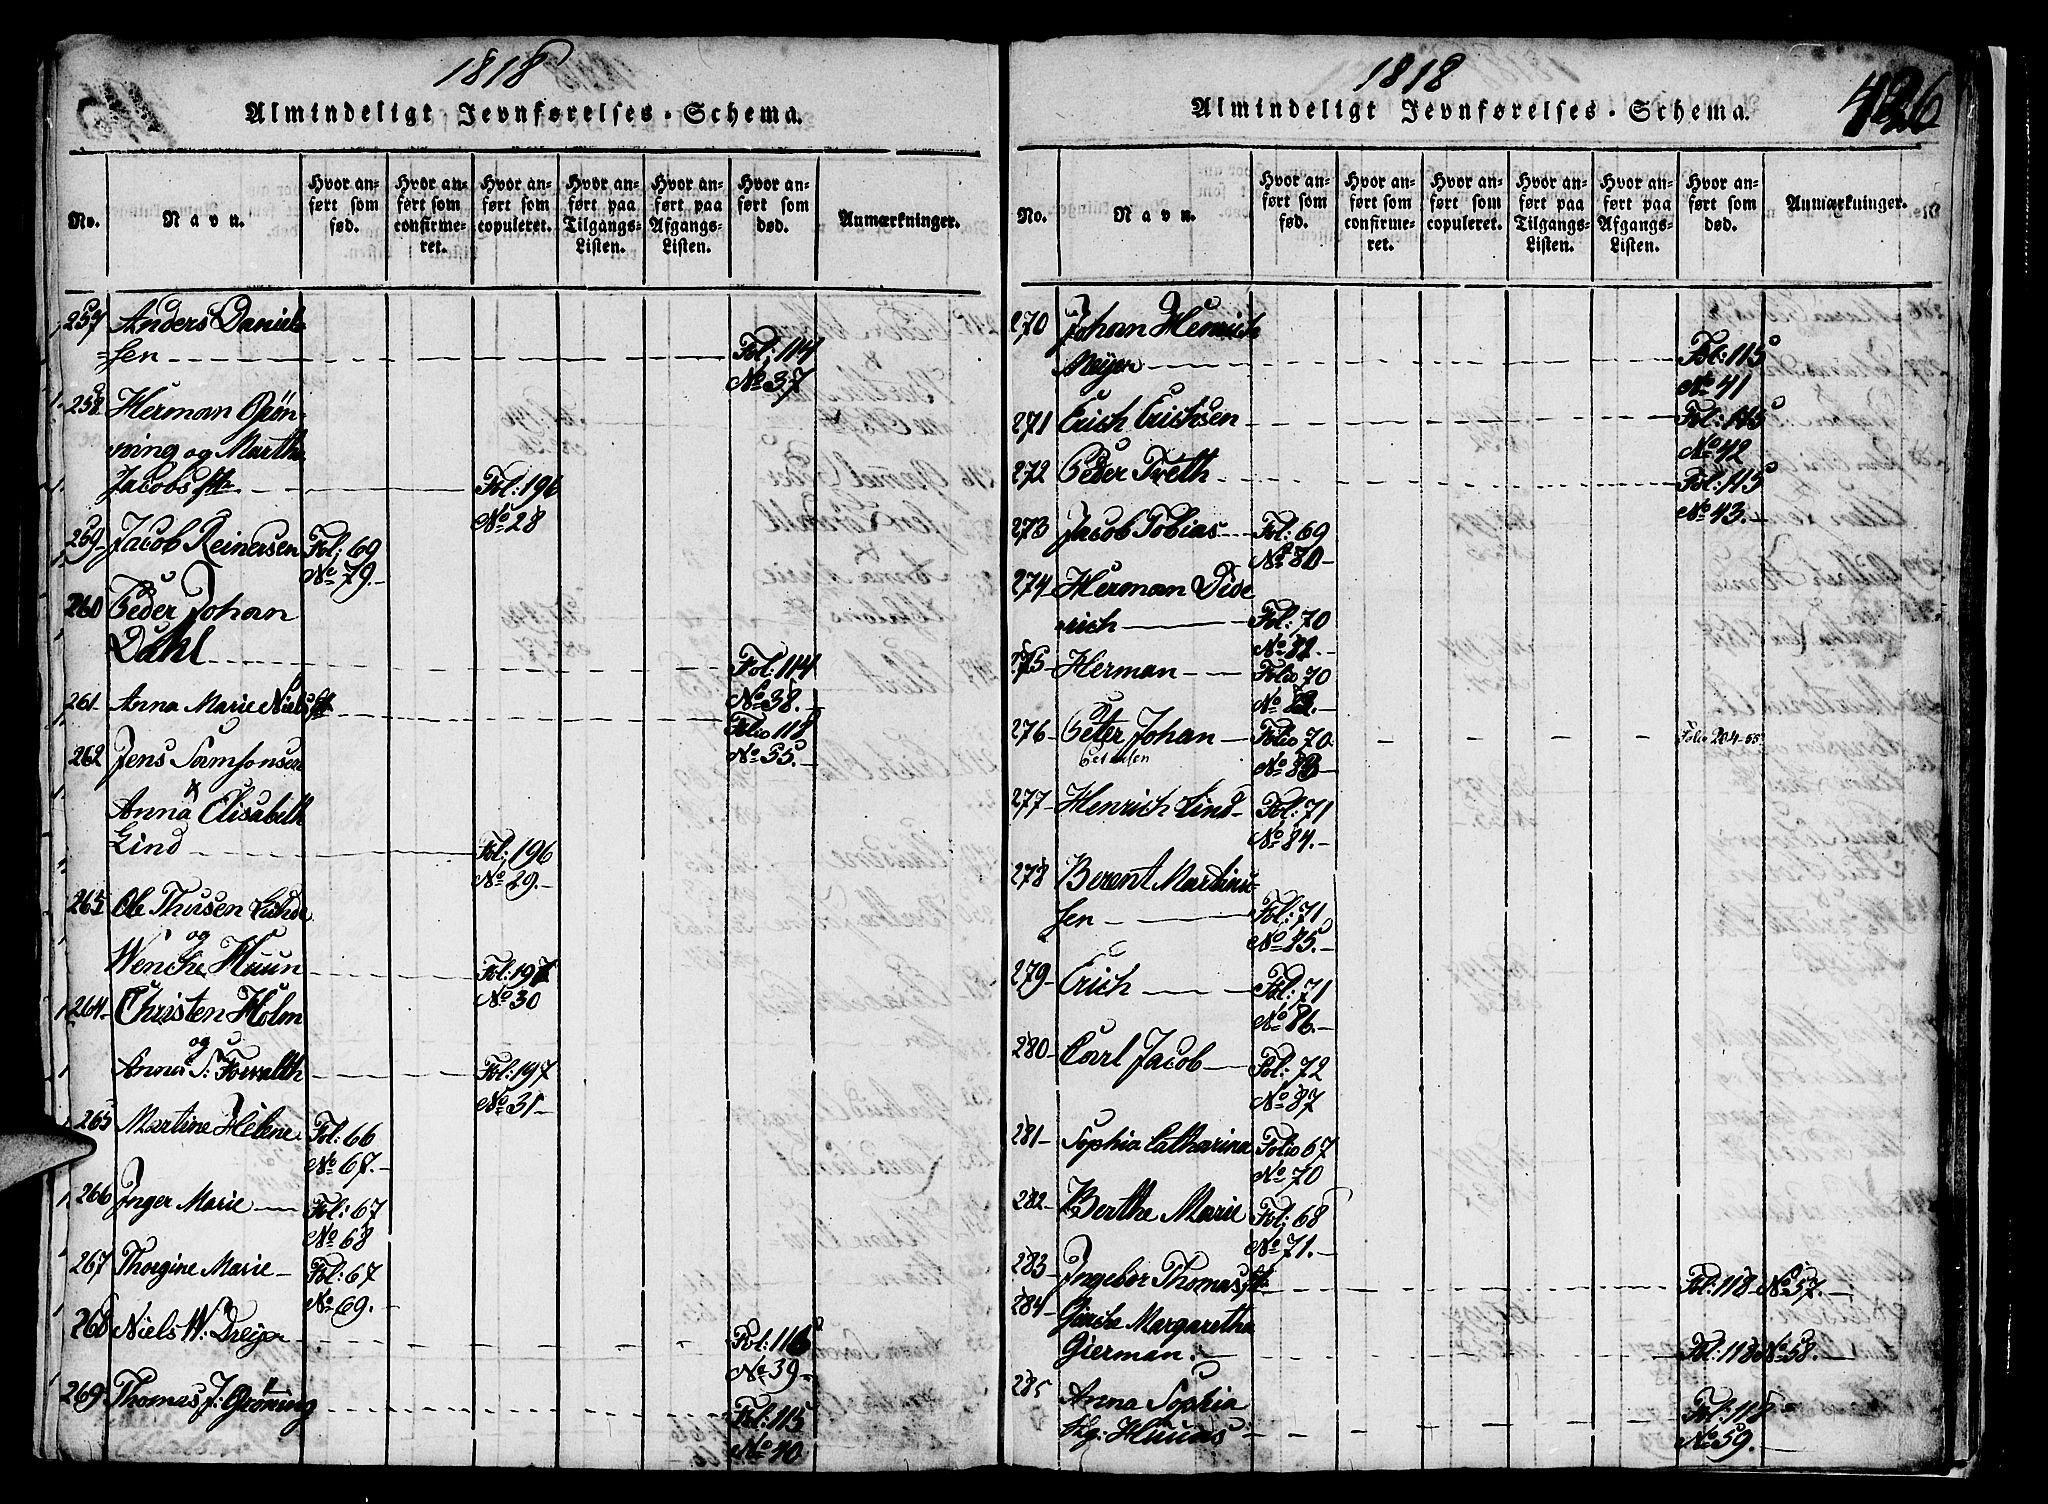 1818
Almindeligt Jevnførelses-Schema.
No.
Navn.
Hvor an-
ført som
fød.
Hvor an-
ført som
confirme-
ret.
Hvor an-
ført som
copuleret.
Hvor an-
ført paa
Tilgangs-
Listen.
Hvor an-
ført paa
Afgangs-
Listen.
Hvor an-
ført som
død.
Anmærkninger.
257 Anders Daniel-
=sen Fol: 114
No 37
258 Herman Grön-
ning og Marthe
Jacobs Fol: 196
No 28
259 Jacob Reinersen Fol: 69
No 79.
260 Peder Johan
Dahl Fol: 114
No 38.
261 Anna Marie Niels Folio 118
No 55.
262 Jens Samsonsen
&
Anna Elisabeth
Lind Fol: 196
No 29.
263 Ole Thusen Lunde
og
Wenche Huun Fol: 197
No 30
264 Christen Holm
og
Anna S: Forvalth Fol: 197
No 31
265 Martine Helene Fol: 66
No 67.
266 Inger Marie Fol: 67
No 68
267 Thorgine Marie Fol: 67
No 69.
268 Niels W: Dreijer Fol: 116
No 39
269 Thomas J: Gröning Fol: 115
No 40
1818
426
Almindeligt Jevnførelses-Schema.
No.
Navn.
Hvor an-
ført som
fød.
Hvor an-
ført som
confirme-
ret.
Hvor an-
ført som
copuleret.
Hvor an-
ført paa
Tilgangs-
Listen.
Hvor an-
ført paa
Afgangs-
Listen.
Hvor an-
ført som
død.
Anmærkninger.
270 Johan Henrich
Meyer Fol: 115
No 41
271 Erich Erichsen Fol: 115
No 42
272 Peder Treth Fol: 115
No 43.
273 Jacob Tobias Fol: 69
No 80
274 Herman Dide
rich Fol: 70
No 81.
275 Herman Folio 70
No 82.
276 Peter Johan Folio 70 Folio 204-55
No 83
277 Henrich Lind Fol: 71
No 84.
278 Berent Martinu-
sen Fol: 71
No 85.
279 Erich Fol: 71
No 86.
280 Carl Jacob Fol: 72
No 87
281 Sophia Catharina Folio 67
No 70
282 Berthe Marie Fol: 68
No 71.
283 Ingebor Thomas Fol: 118 No 57.
284 Giesche Margaretha
Gierman. Fol: 118 No 58.
285 Anna Sophia
Huuns Fol: 118
No 59.